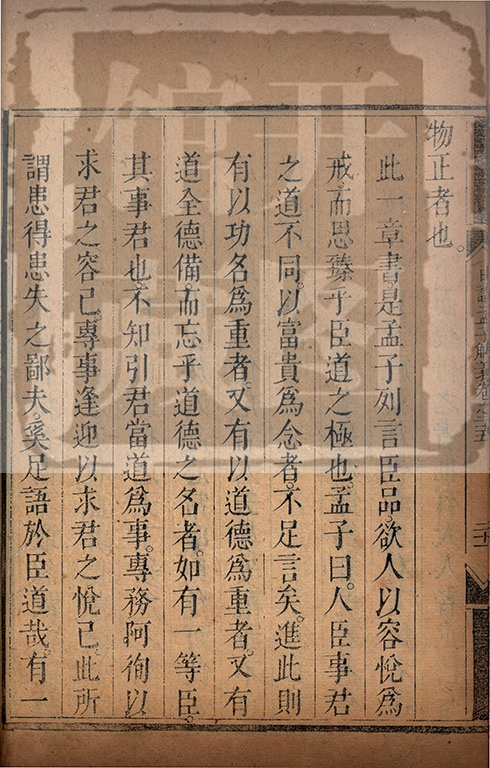 物正者也。
此一章書。是孟子列言臣品。欲人以容悅爲
戒。而思臻乎臣道之極也。孟子曰。人臣事君
之道不同。以富貴爲念者。不足言矣。進此則
有以功名爲重者。又有以道德爲重者。又有
道全德備。而忘乎道德之名者。如有一等臣。
其事君也。不知引君當道爲事。專務阿徇以
求君之容己。專事逢迎以求君之悅己。此所
謂患得患失之鄙夫。奚足語於臣道哉。有一